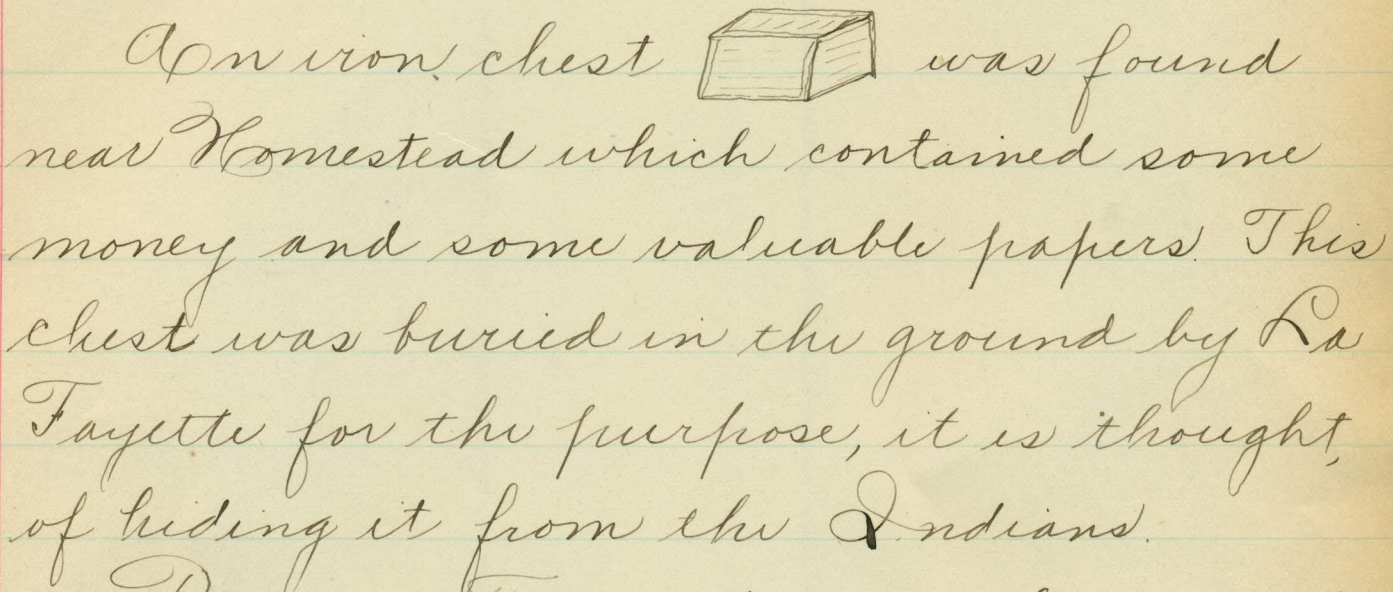 An iron chest was found
near Homestead which contained some
money and some valuable papers. This
chest was buried in the ground by La
Fayette for the purpose, it is thought,
of hiding it from the Indians.